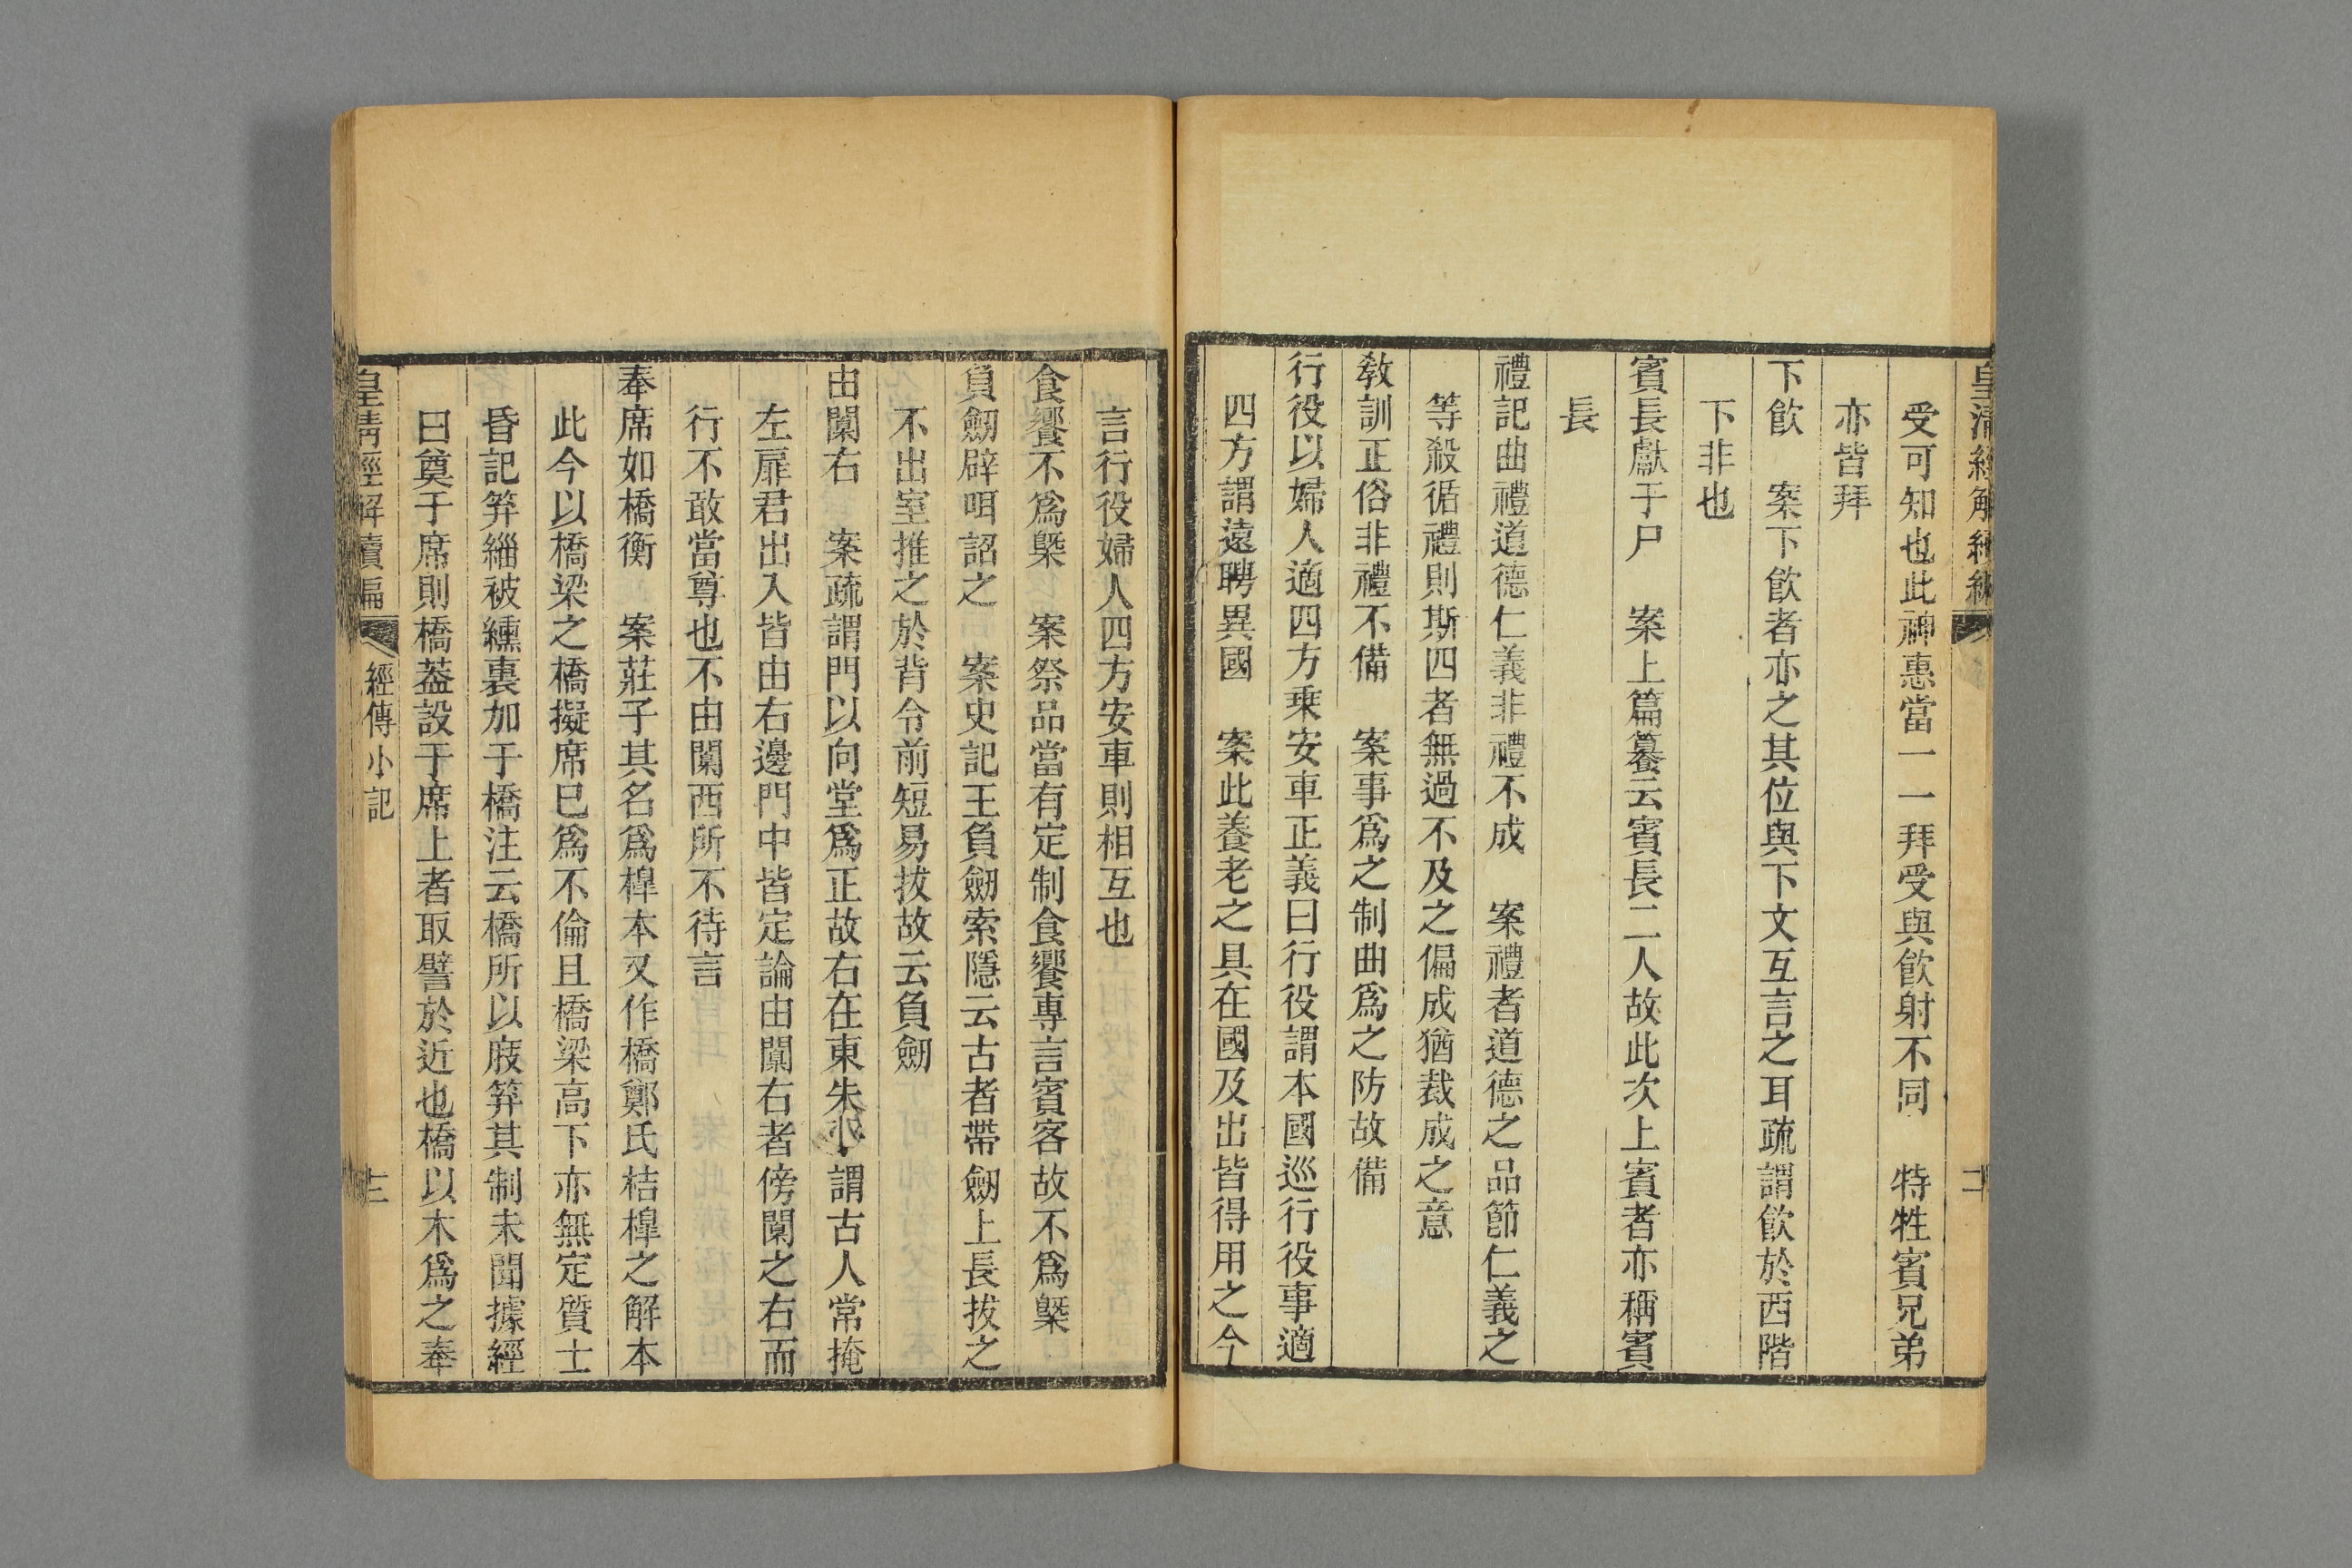 皇清經解續編
受可知也此神惠當一一拜受與飮射不同　特牲賓兄弟
亦皆拜
下飮　案下飮者亦之其位與下文互言之耳疏謂飮於西階
下非也
賓長獻于尸　案上篇籑云賓長二人故此次上賓者亦稱賓
長
禮記曲禮道德仁義非禮不成　案禮者道德之品節仁義之
等殺循禮則斯四者無過不及之偏成猶裁成之意
敎訓正俗非禮不備　案事爲之制曲爲之防故備
行役以婦人適四方乗安車正義曰行役謂本國巡行役事適
四方謂遠聘異國　案此養老之具在國及出皆得用之今
言行役婦人四方安車則相互也
食饗不爲槩　案祭品當有定制食饗專言賓客故不爲槩
負劒辟咡詔之　案史記王負劒索隱云古者帶劒上長拔之
不出室推之於背令前短易拔故云負劒
由闑右　案疏謂門以向堂爲正故右在東朱小謂古人常掩
左扉君出入皆由右邊門中皆定論由闑右者傍闑之右而
行不敢當尊也不由闑西所不待言
奉席如橋衡　案莊子其名爲橰本又作橋鄭氏桔橰之解本
此今以橋梁之橋擬席已爲不倫且橋梁高下亦無定質士
昏記笲緇被纁裏加于橋注云橋所以庪笲其制未聞據經
曰奠于席則橋蓋設于席上者取譬於近也橋以木爲之奉
皇清經解續編　經傳小記